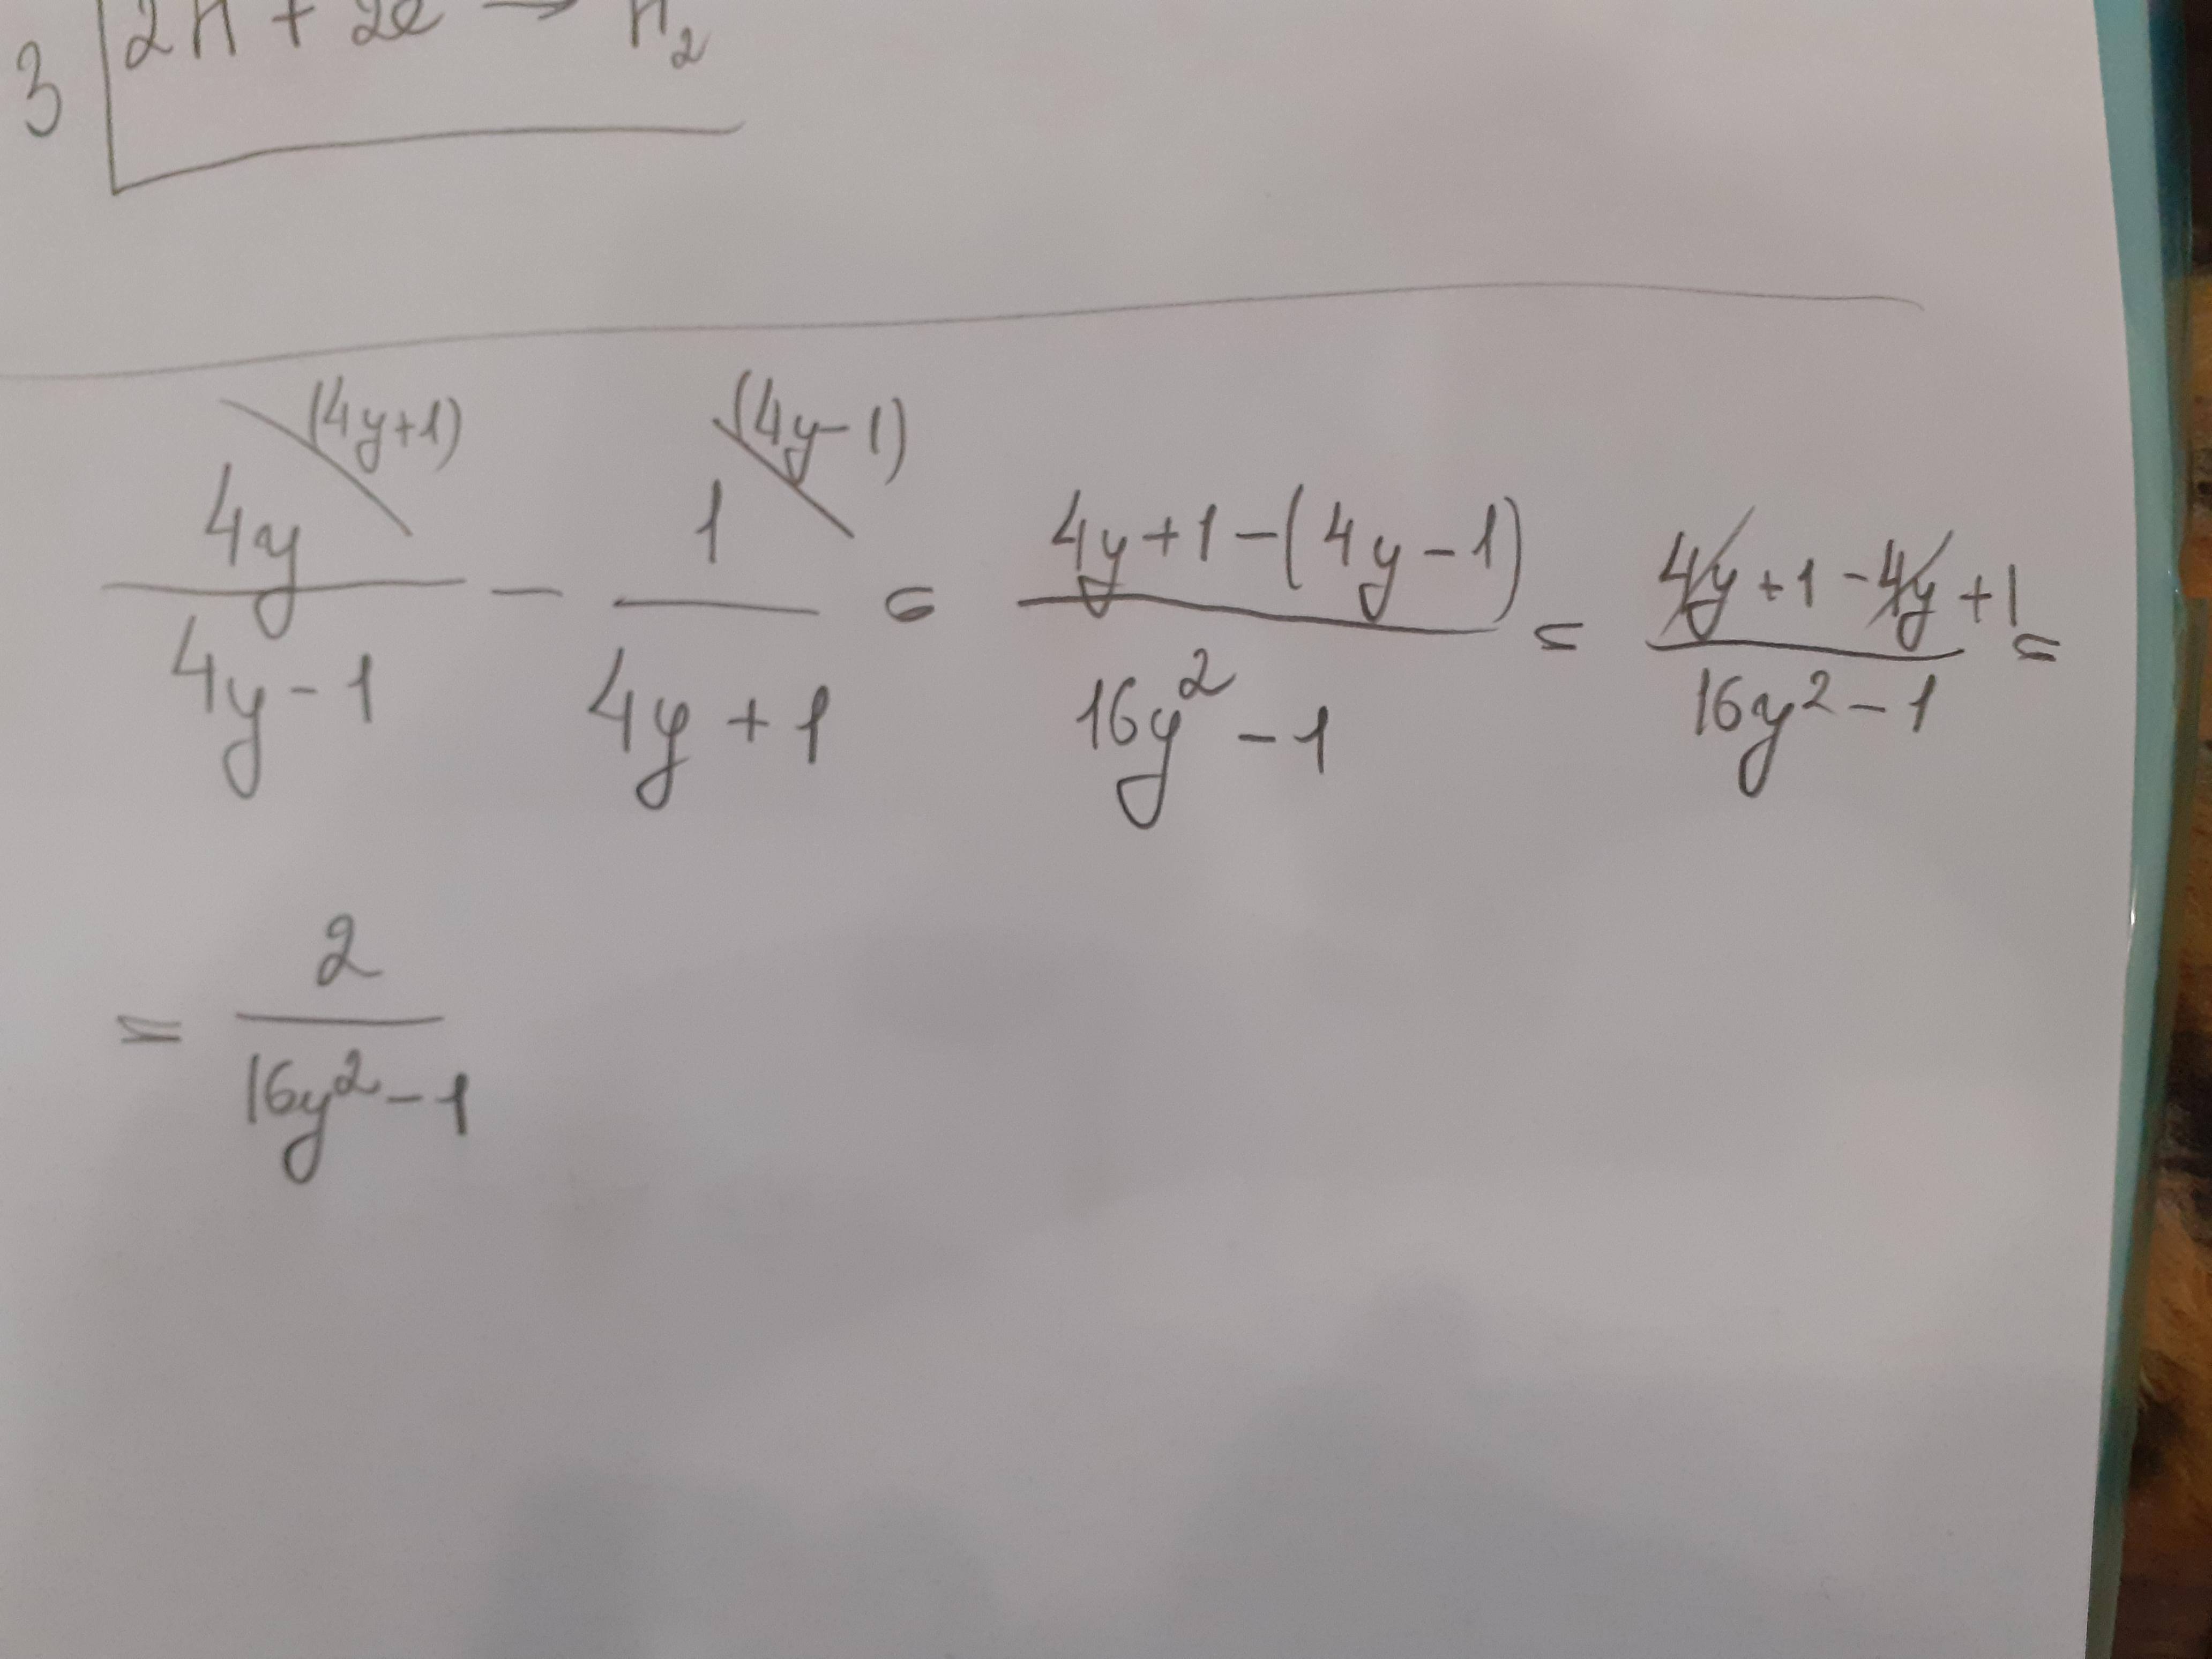 3 | 2H + 2e → H₂
4y/(4y-1) \(4y+1) - 1/(4y+1) \(4y-1) = (4y+1-(4y-1))/(16y²-1) = (4y+1-4y+1)/(16y²-1) =
= 2/(16y²-1)